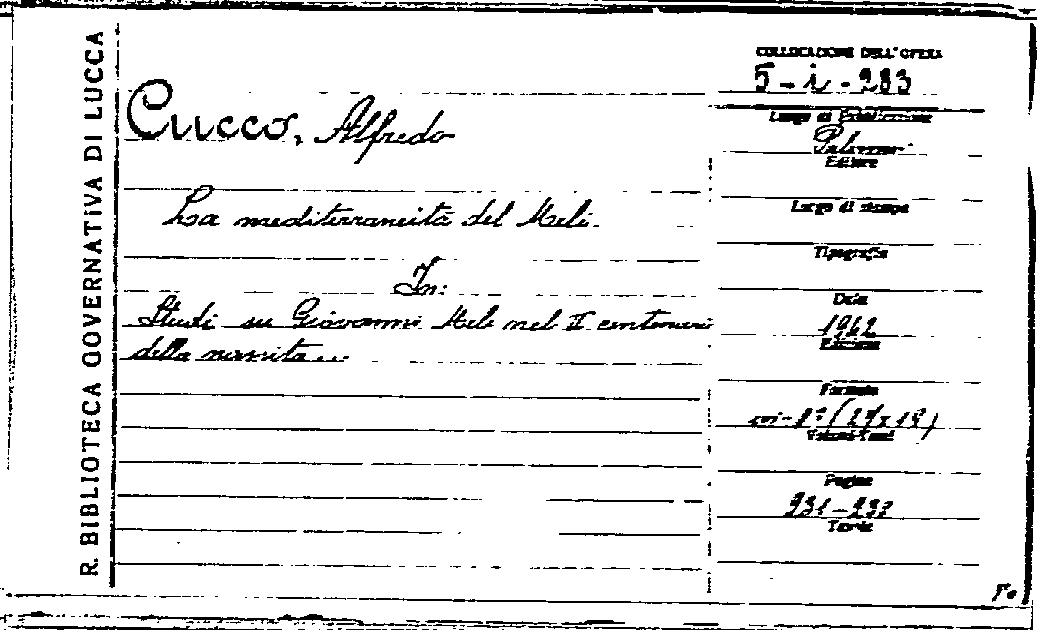 R. BIBLIOTECA GOVERNATIVA DI LUCCA
Cucco, Alfredo
La mediterraneità del Meli.
In:
Studi su Giovanni Meli nel II centenari
della nascita...
COLLOCAZIONE DELL'OPERA
5-i-283
Luogo di Pubblicazione
Palermo
Editore
Luogo di stampa
Tipografia
Data
1962
Edizione
Formato
in-8° (27x19)
Volumi-Tomi
Pagine
231-237
Tavole